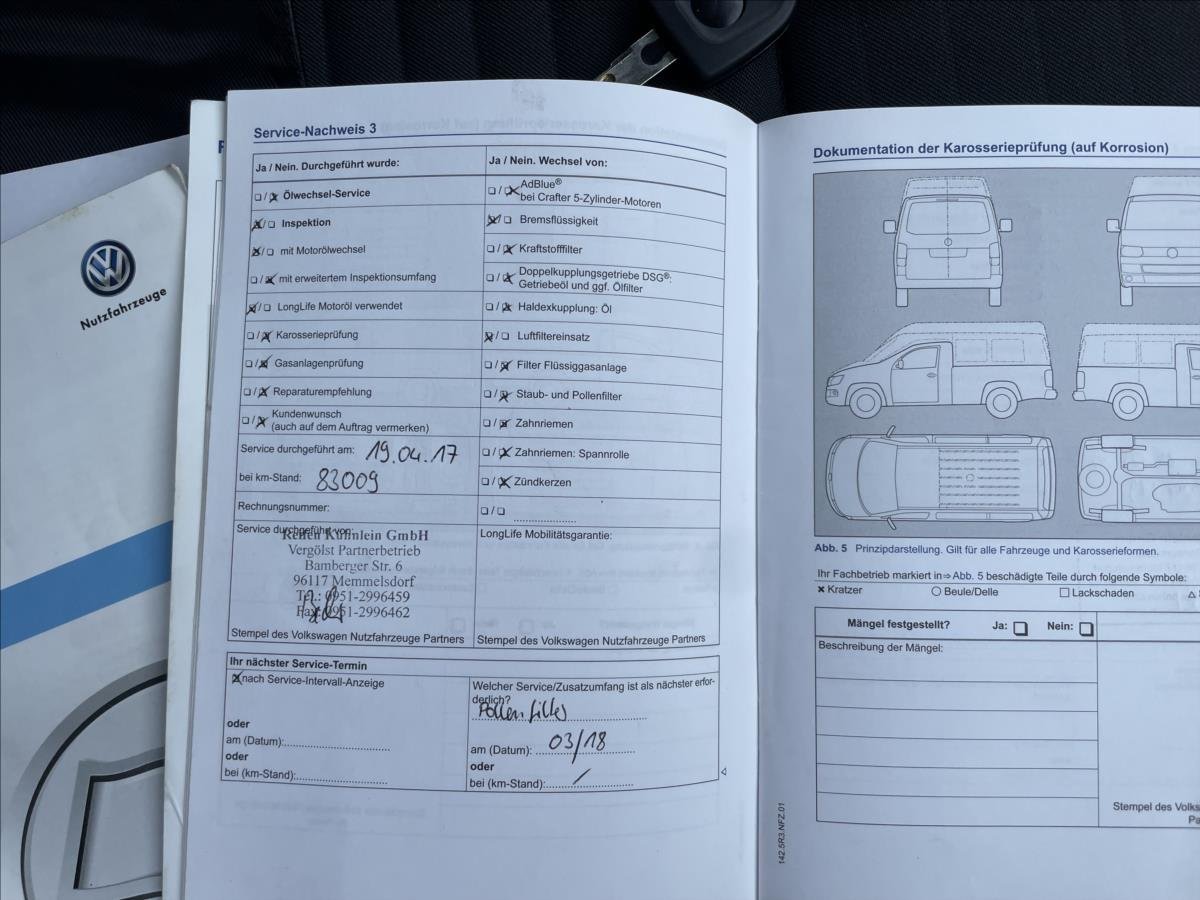 Nutzfahrzeuge
Service-Nachweis 3
Ja / Nein. Durchgeführt wurde:
Ja / Nein. Wechsel von:
Ölwechsel-Service
AdBlue®
bei Crafter 5-Zylinder-Motoren
Inspektion
Bremsflüssigkeit
mit Motorölwechsel
Kraftstofffilter
mit erweitertem Inspektionsumfang
Doppelkupplungsgetriebe DSG®:
Getriebeöl und ggf. Ölfilter
LongLife Motoröl verwendet
Haldexkupplung: Öl
Karosserieprüfung
Luftfiltereinsatz
Gasanlagenprüfung
Filter Flüssiggasanlage
Reparaturempfehlung
Staub- und Pollenfilter
Kundenwunsch
(auch auf dem Auftrag vermerken)
Zahnriemen
Service durchgeführt am: 19.04.17
Zahnriemen: Spannrolle
bei km-Stand: 83009
Zündkerzen
Rechnungsnummer:
Service durchgeführt von:
LongLife Mobilitätsgarantie:
Reifen GmbH
Vergölst Partnerbetrieb
Bamberger Str. 6
96117 Memmelsdorf
Tel.: 0951-2996459
Fax: 0951-2996462
Stempel des Volkswagen Nutzfahrzeuge Partners
Stempel des Volkswagen Nutzfahrzeuge Partners
Ihr nächster Service-Termin
nach Service-Intervall-Anzeige
Welcher Service/Zusatzumfang ist als nächster erfor-
derlich?
Pollenfilter
oder
am (Datum):
am (Datum): 03/18
oder
oder
bei (km-Stand):
bei (km-Stand): /
Dokumentation der Karosserieprüfung (auf Korrosion)
Abb. 5 Prinzipdarstellung. Gilt für alle Fahrzeuge und Karosserieformen.
Ihr Fachbetrieb markiert in ⇒ Abb. 5 beschädigte Teile durch folgende Symbole:
Kratzer
Beule/Delle
Lackschaden
Mängel festgestellt?
Ja:
Nein:
Beschreibung der Mängel:
Stempel des Volks
Pa
142.5R3.NFZ.01